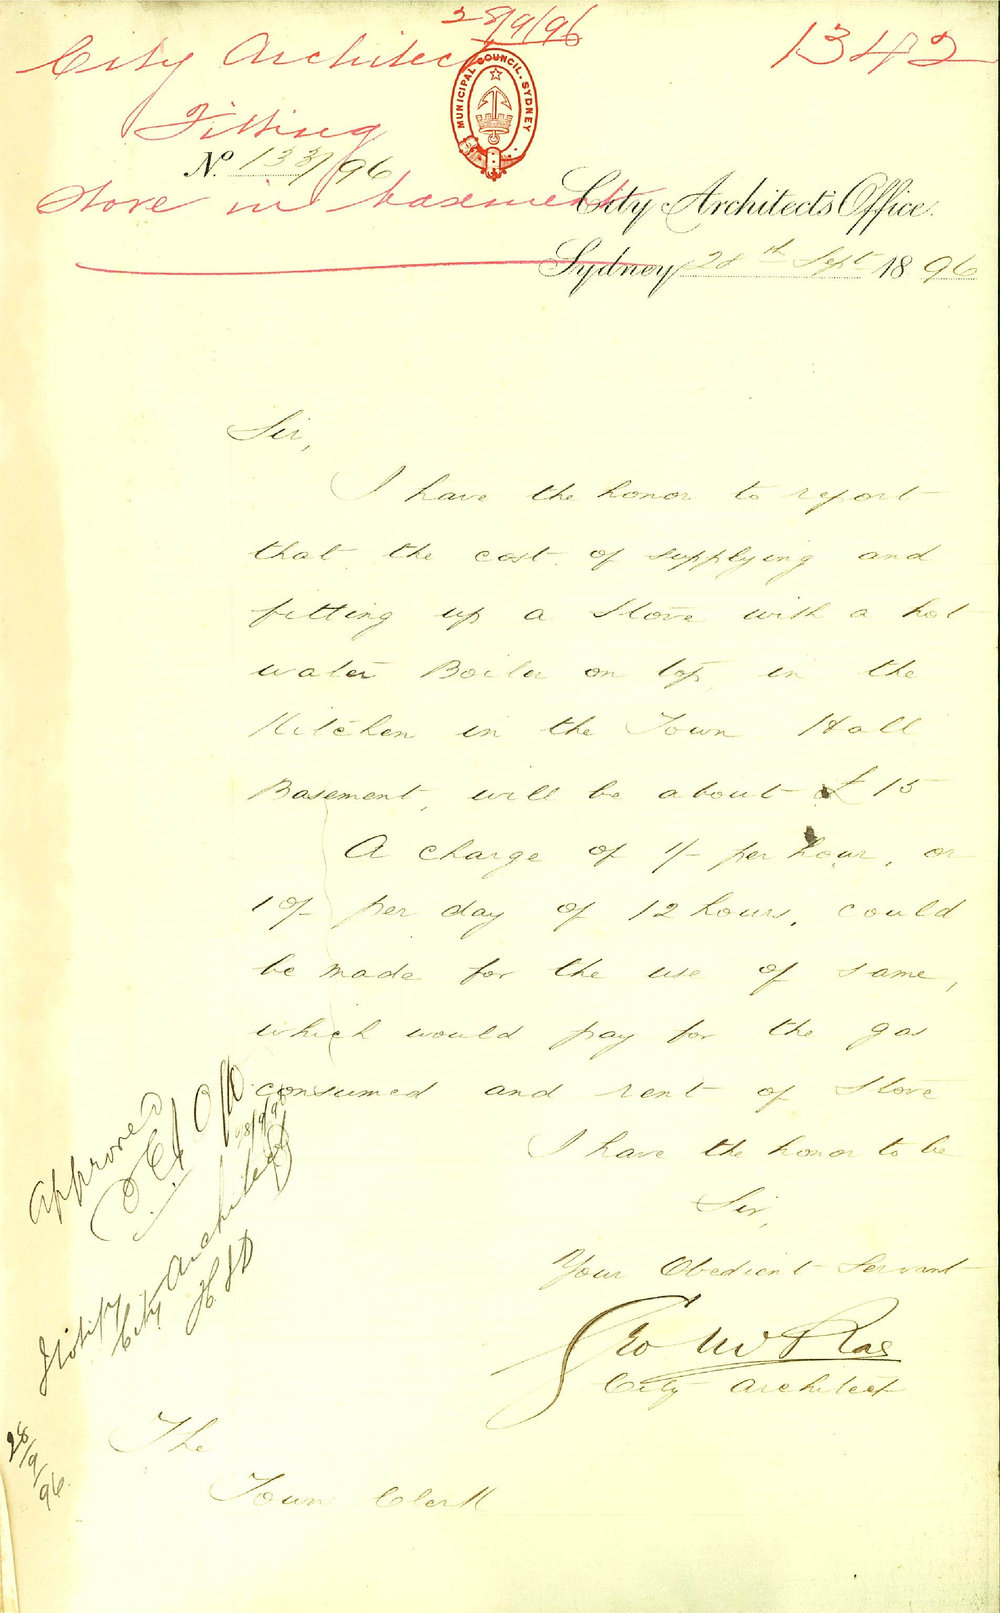 28/9/96
City Architect
1342
MUNICIPAL COUNCIL. SYDNEY
Fitting
No. 133/96
Stove in basement
City Architect's Office.
Sydney 28th Sept 1896
Sir,
I have the honor to report
that the cost of supplying and
fitting up a Stove with a hot
water Boiler on top, in the
Kitchen in the Town Hall
Basement, will be about £15
A charge of 1/- per hour, or
10/- per day of 12 hours, could
be made for the use of same,
which would pay for the gas
consumed and rent of Stove
I have the honor to be
Sir,
Your Obedient Servant
Geo McRae
City Architect
The
Town Clerk
Approved
28/9/96
Notify
City Architect
28/9/96